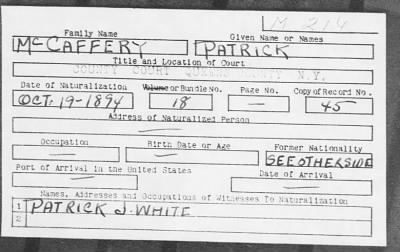 M 214
Family Name Given Name or Names
McCAFFERY PATRICK
Title and Location of Court
COUNTY COURT QUEENS COUNTY N.Y.
Date of Naturalization Volume or Bundle No. Page No. Copy of Record No.
OCT. 19-1894 18 — 45
Address of Naturalized Person
—
Occupation Birth Date or Age Former Nationality
— — SEE OTHERSIDE
Port of Arrival in the United States Date of Arrival
— —
Names, Addresses and Occupations of Witnesses To Naturalization
1 PATRICK J. WHITE
2